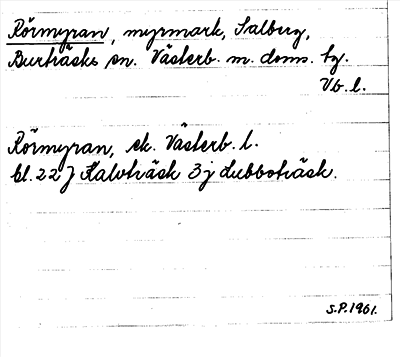 Rörmyran, myrmark, Salberg,
Burträsks sn. Västerb. m. doms. tg.
Vb. l.
Rörmyran, ek. Västerb. l.
bl. 22 J Kalvträsk 3 j Lubboträsk.
S.P. 1961.